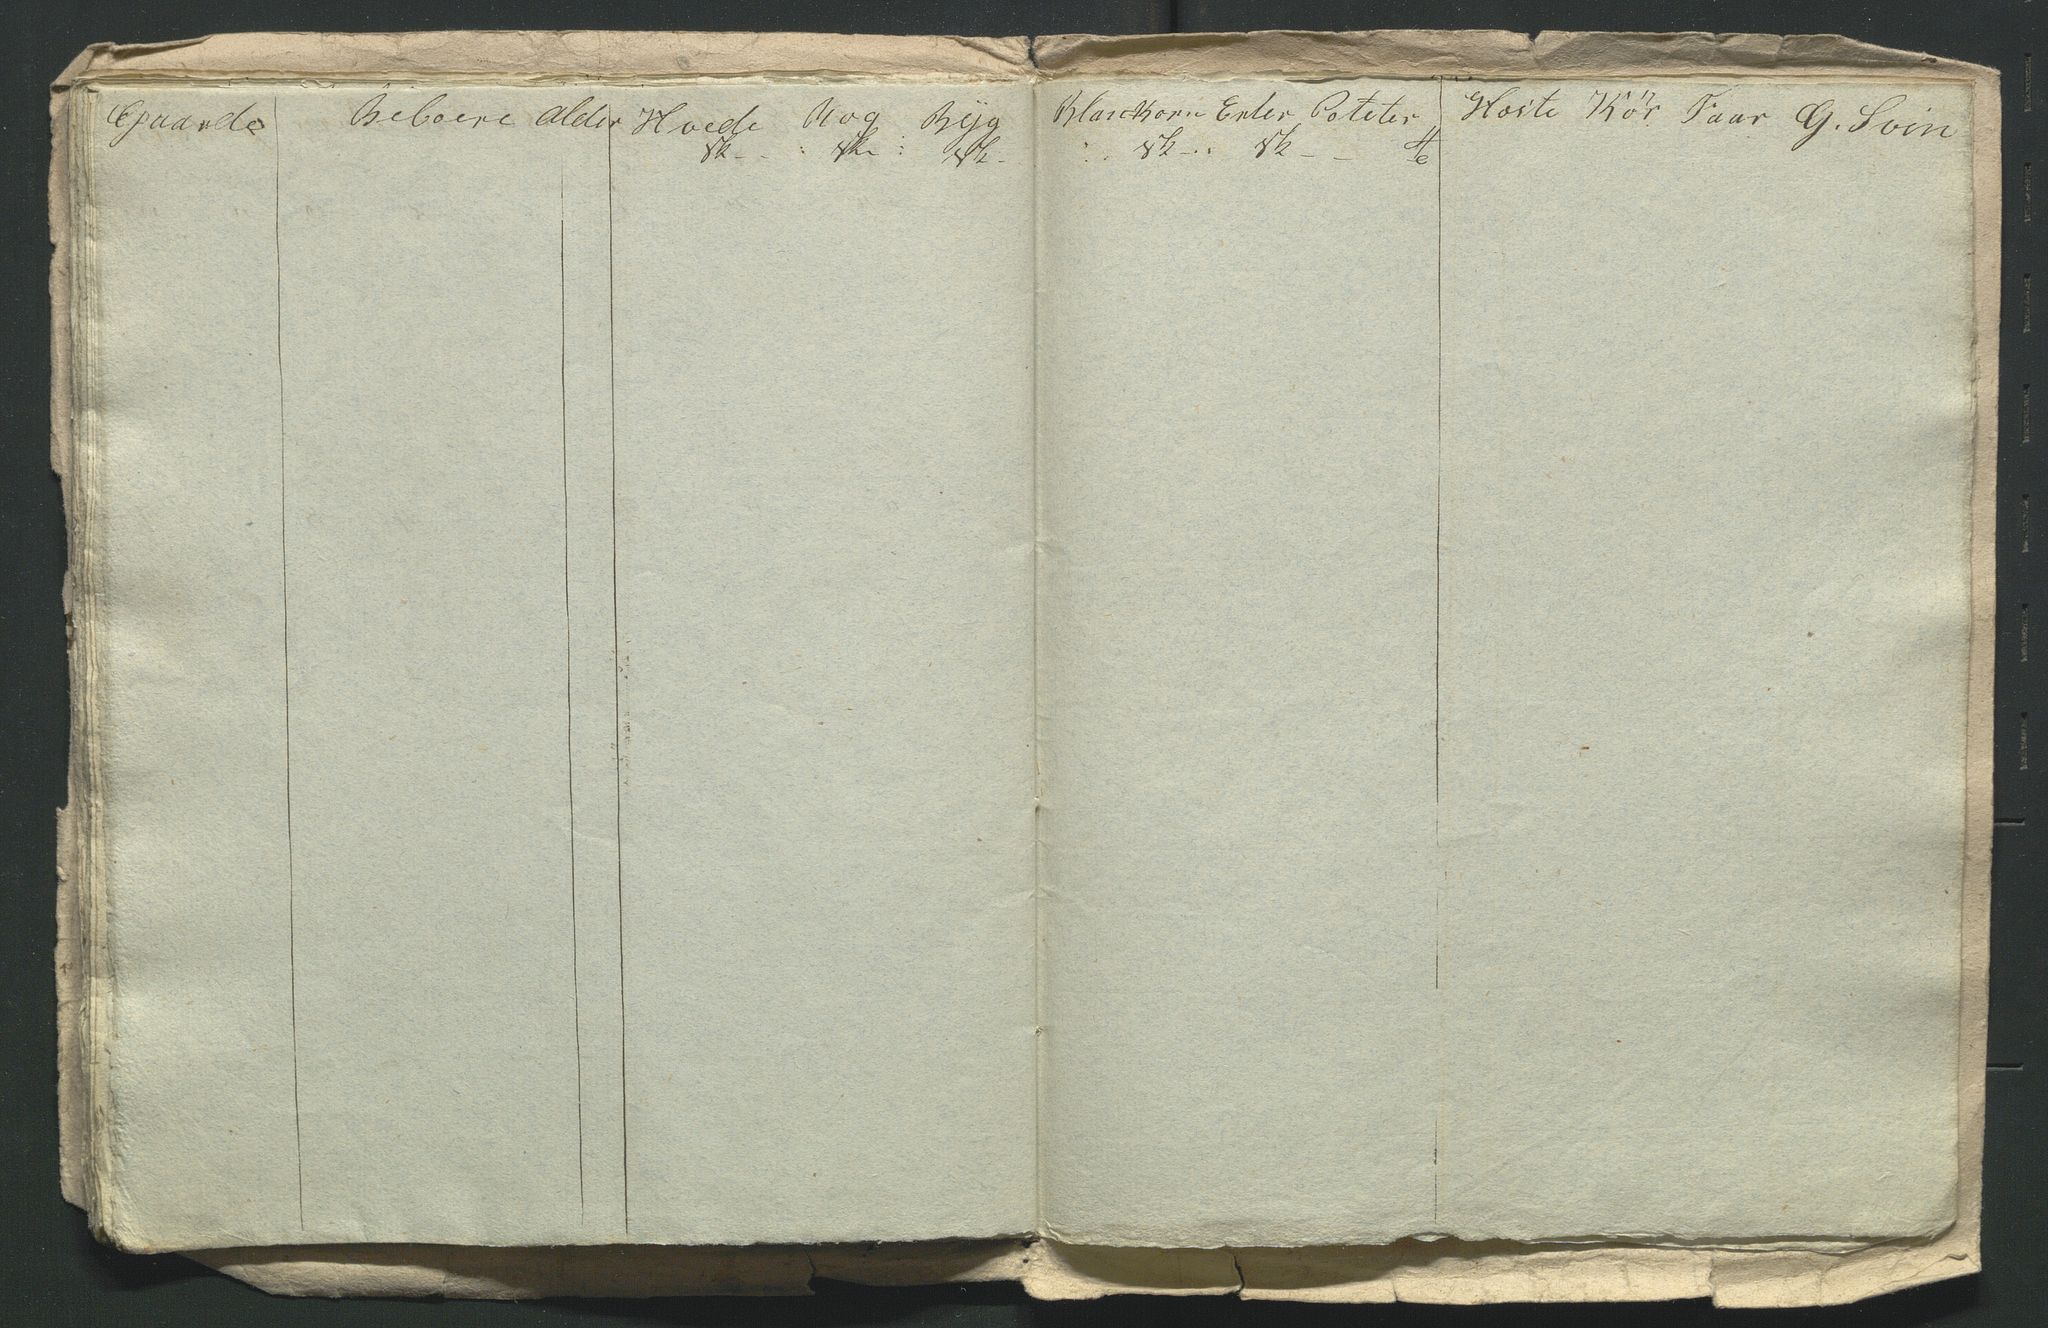 Gaarde Beboere Alder Hvede Rog Byg Blanckorn Erter Poteter Heste Kör Faar G. Svin
Sk Sk Sk Sk Sk